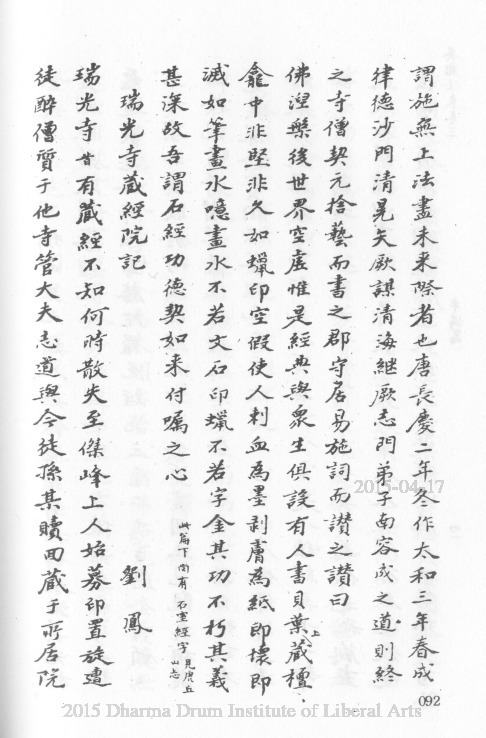 謂施無上法盡未来際者也唐長慶二年冬作太和三年春成
律德沙門清晃矢厥謀清海継厥志門弟子南容成之道則終
之寺僧契元捨藝而書之郡守居易施詞而讃之讃曰
佛涅槃後世界空虛惟是經典與衆生俱設有人書貝葉上藏檀
龕中非堅非久如蠟印空假使人刺血為墨剥膚為紙即壞即
滅如筆畫水噫畫水不若文石印蠟不若字金其功不朽其義
甚深故吾謂石經功德契如来付嘱之心
此篇下尚有石壁經字見虎丘山志
瑞光寺藏經院記
劉鳳
瑞光寺昔有藏經不知何時散失至傑峰上人始募印置旋遭
徒醉僧質于他寺管大夫志道與今徒孫某贖回藏于所居院
092
2015-04-17
2015 Dharma Drum Institute of Liberal Arts